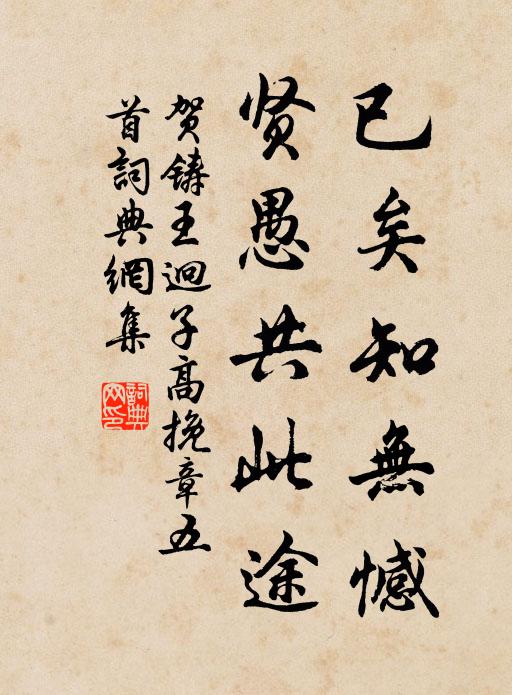 已矣知無憾
贤愚共此途
贺鑄王迥子高挽章五
首詞典網集
詞典
网印